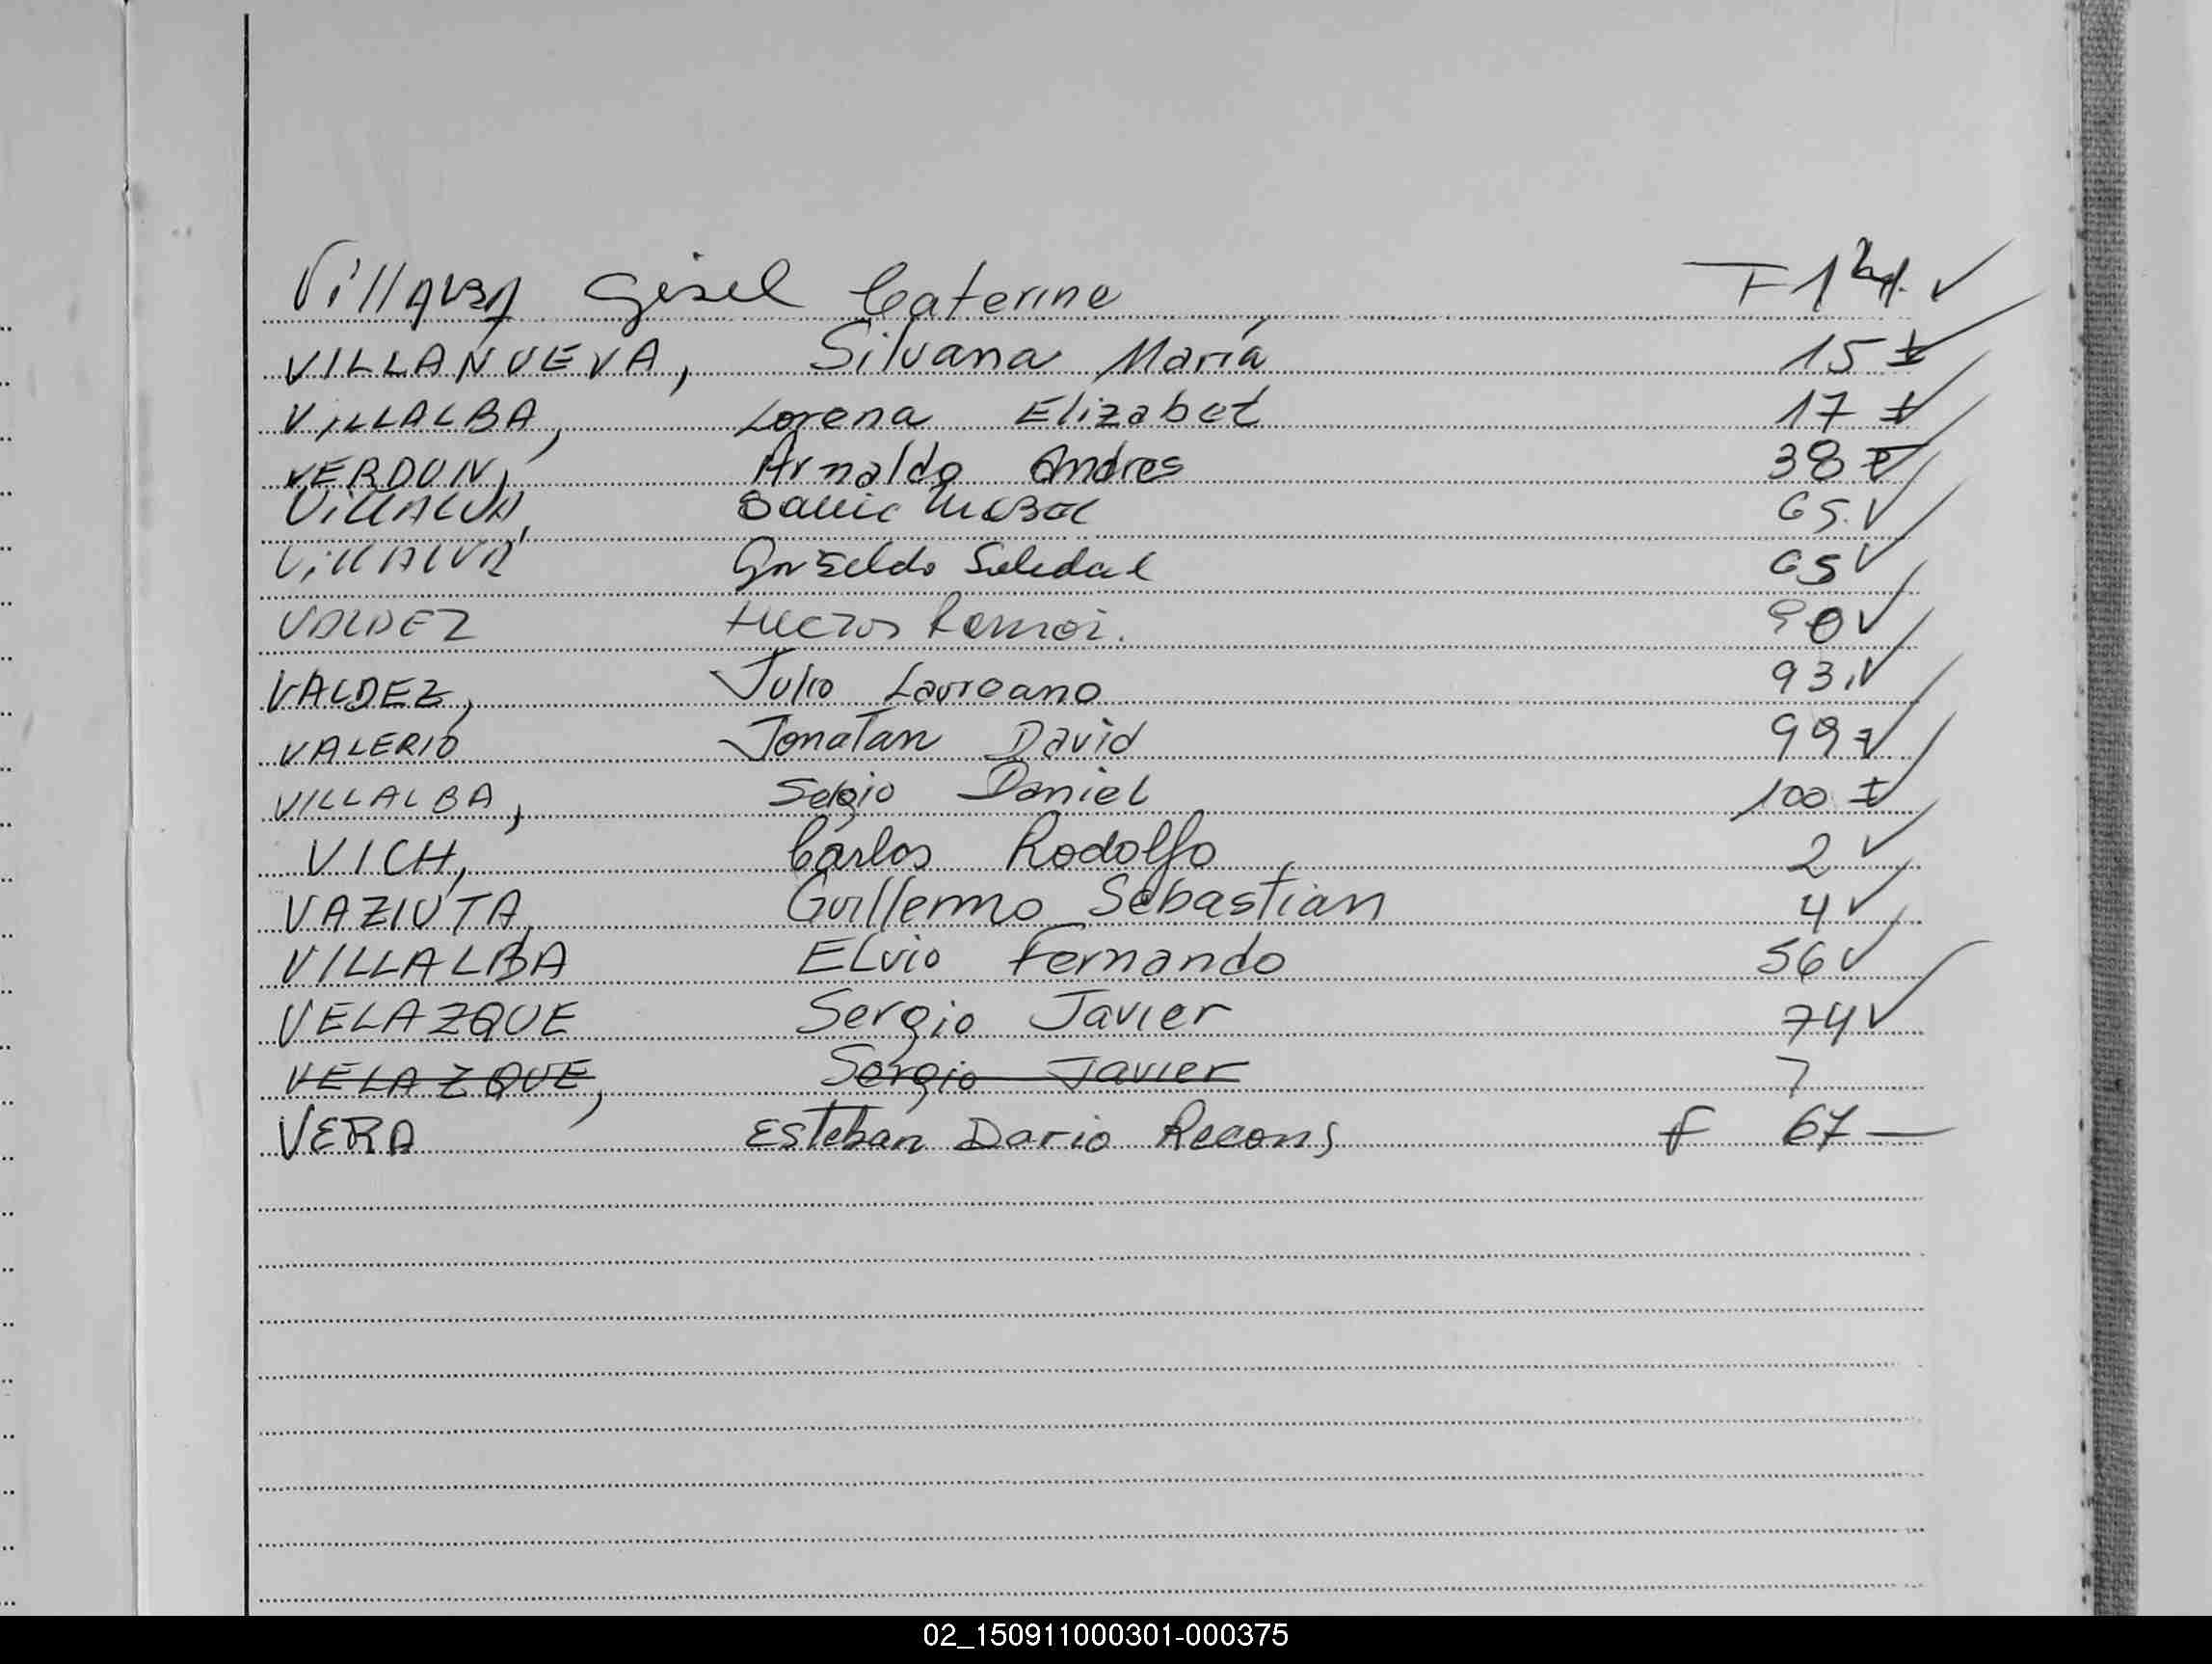 Villalba Gisel Caterine F 1
VILLANUEVA, Silvana María 15 t
VILLALBA, Lorena Elizabet 17 t
VERDUN, Arnaldo Andres 38 t
VILLALVA, 65 ✓
VILLALVA Griselda Soledad 65 ✓
VALDEZ Ramon 90 ✓
VALDEZ, Julio Laureano 93 ✓
VALERIO Jonatan David 99 t
VILLALBA, Sergio Daniel 100 t
VICH, Carlos Rodolfo 2 ✓
VAZIUTA, Guillermo Sebastián 4 ✓
VILLALBA Elvio Fernando 56 ✓
VELAZQUE Sergio Javier 74 ✓
VELAZQUE, Sergio Javier 7
VERA Esteban Dario Recons F 67 —
02_150911000301-000375